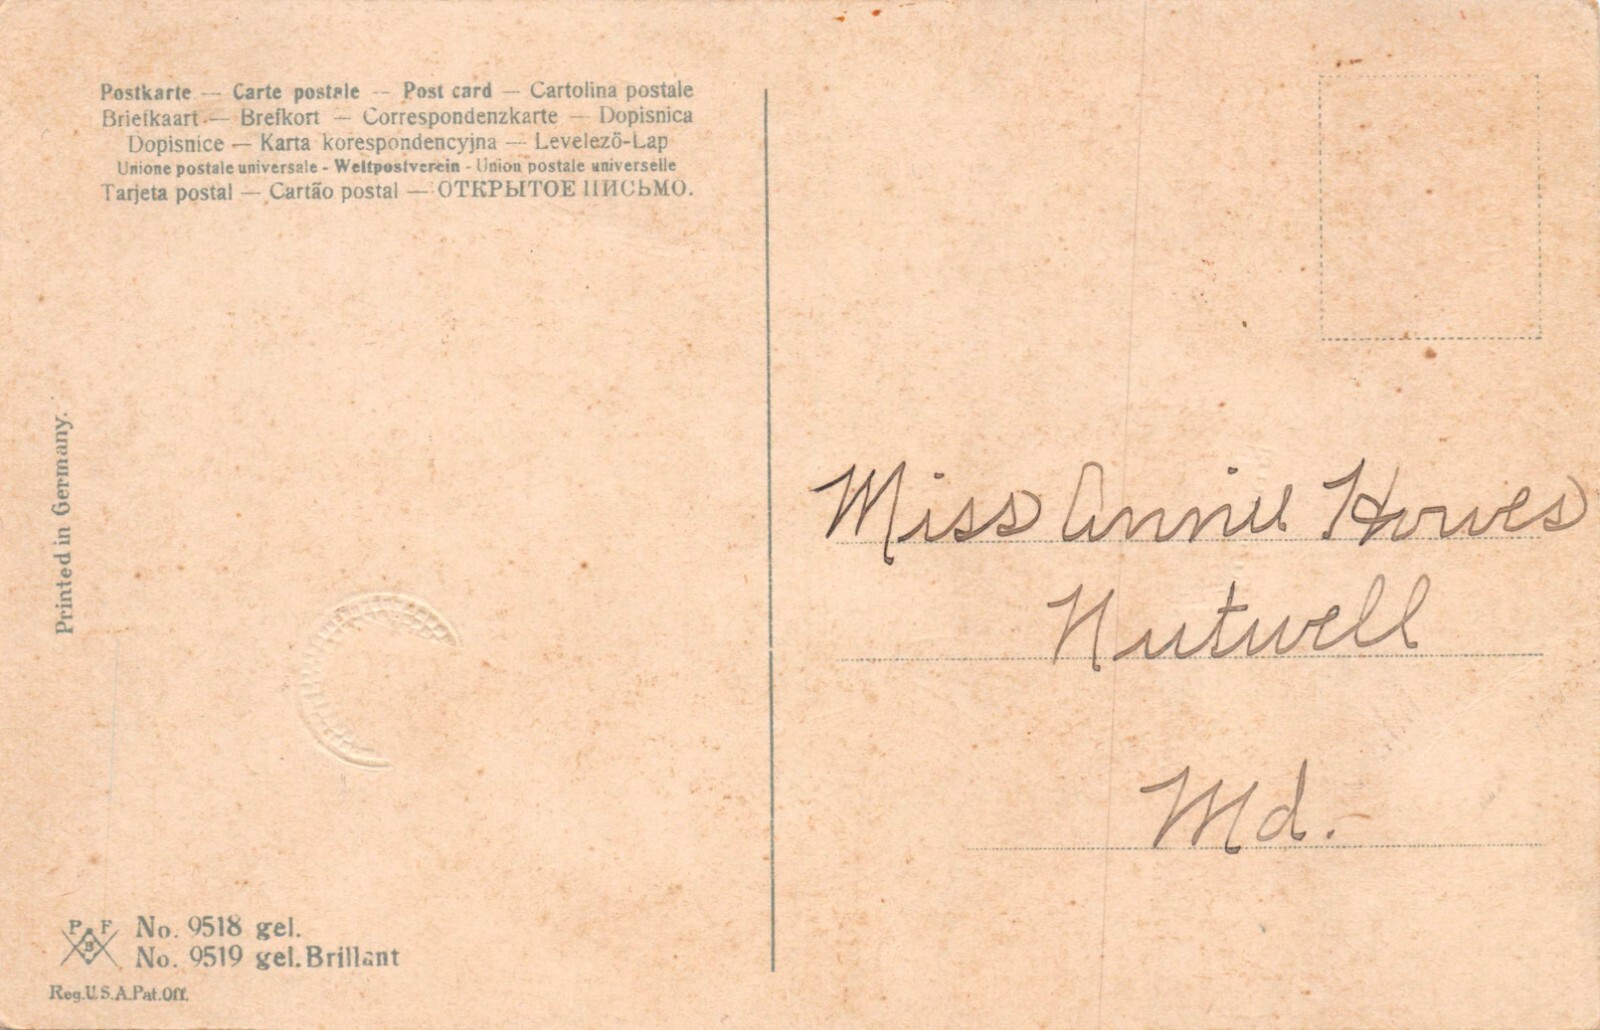 Postkarte — Carte postale — Post card — Cartolina postale
Briefkaart — Brefkort — Correspondenzkarte — Dopisnica
Dopisnice — Karta korespondencyjna — Levelezö-Lap
Unione postale universale - Weltpostverein - Union postale universelle
Tarjeta postal — Cartão postal — ОТКРЫТОЕ ПИСЬМО.
Printed in Germany.
Miss Annie Howes
Nutwell
Md.
P F
B
No. 9518 gel.
No. 9519 gel. Brillant
Reg. U.S.A. Pat. Off.